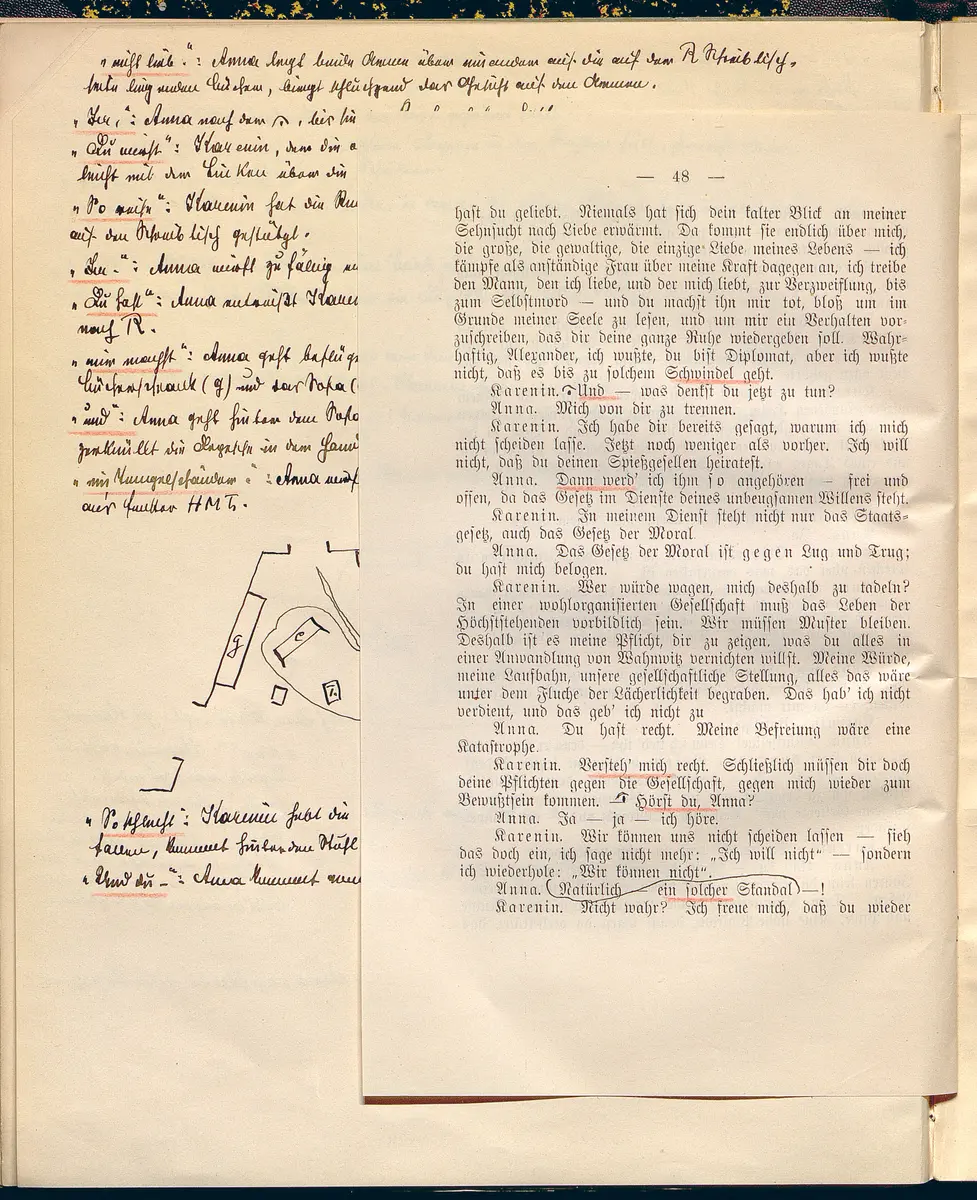 "nicht lieb.": Anna legt beide Armen über einander auf die auf dem R Schreibtisch-
seite liegenden Büchern, beugt schluchzend das Gesicht auf den Armen.
"Du,": Anna nach dem
"Du nicht": Karenin, dem die
leicht mit dem Linken über die
"So weise": Karenin hat die
auf den Schreibtisch gestützt.
"Du-": Anna wirft zufällig
"Du hast": Anna entreißt
nach R.
"mir machst": Anna geht
Bücherschrank (g) und das Sofa (
"und": Anna geht hinter dem Sofa
zerknüllt die Depesche in dem
Anna
aus Fenster
g
e
"So schlecht": Karenin hebt die
kommt hinter den Stuhl
"Und du-": Anna kommt
— 48 —
hast du geliebt. Niemals hat sich dein kalter Blick an meiner
Sehnsucht nach Liebe erwärmt. Da kommt sie endlich über mich,
die große, die gewaltige, die einzige Liebe meines Lebens — ich
kämpfe als anständige Frau über meine Kraft dagegen an, ich treibe
den Mann, den ich liebe, und der mich liebt, zur Verzweiflung, bis
zum Selbstmord — und du machst ihn mir tot, bloß um im
Grunde meiner Seele zu lesen, und um mir ein Verhalten vor-
zuschreiben, das dir deine ganze Ruhe wiedergeben soll. Wahr-
haftig, Alexander, ich wußte, du bist Diplomat, aber ich wußte
nicht, daß es bis zu solchem Schwindel geht.
Karenin. Und — was denkst du jetzt zu tun?
Anna. Mich von dir zu trennen.
Karenin. Ich habe dir bereits gesagt, warum ich mich
nicht scheiden lasse. Jetzt noch weniger als vorher. Ich will
nicht, daß du deinen Spießgesellen heiratest.
Anna. Dann werd' ich ihm so angehören — frei und
offen, da das Gesetz im Dienste deines unbeugsamen Willens steht.
Karenin. In meinem Dienst steht nicht nur das Staats-
gesetz, auch das Gesetz der Moral
Anna. Das Gesetz der Moral ist gegen Lug und Trug;
du hast mich belogen.
Karenin. Wer würde wagen, mich deshalb zu tadeln?
In einer wohlorganisierten Gesellschaft muß das Leben der
Höchststehenden vorbildlich sein. Wir müssen Muster bleiben.
Deshalb ist es meine Pflicht, dir zu zeigen, was du alles in
einer Anwandlung von Wahnwitz vernichten willst. Meine Würde,
meine Laufbahn, unsere gesellschaftliche Stellung, alles das wäre
unter dem Fluche der Lächerlichkeit begraben. Das hab' ich nicht
verdient, und das geb' ich nicht zu
Anna. Du hast recht. Meine Befreiung wäre eine
Katastrophe.
Karenin. Versteh' mich recht. Schließlich müssen dir doch
deine Pflichten gegen die Gesellschaft, gegen mich wieder zum
Bewußtsein kommen. — Hörst du, Anna?
Anna. Ja — ja — ich höre.
Karenin. Wir können uns nicht scheiden lassen — sieh
das doch ein, ich sage nicht mehr: „Ich will nicht“ — sondern
ich wiederhole: „Wir können nicht“.
Anna. Natürlich — ein solcher Skandal —!
Karenin. Nicht wahr? Ich freue mich, daß du wieder